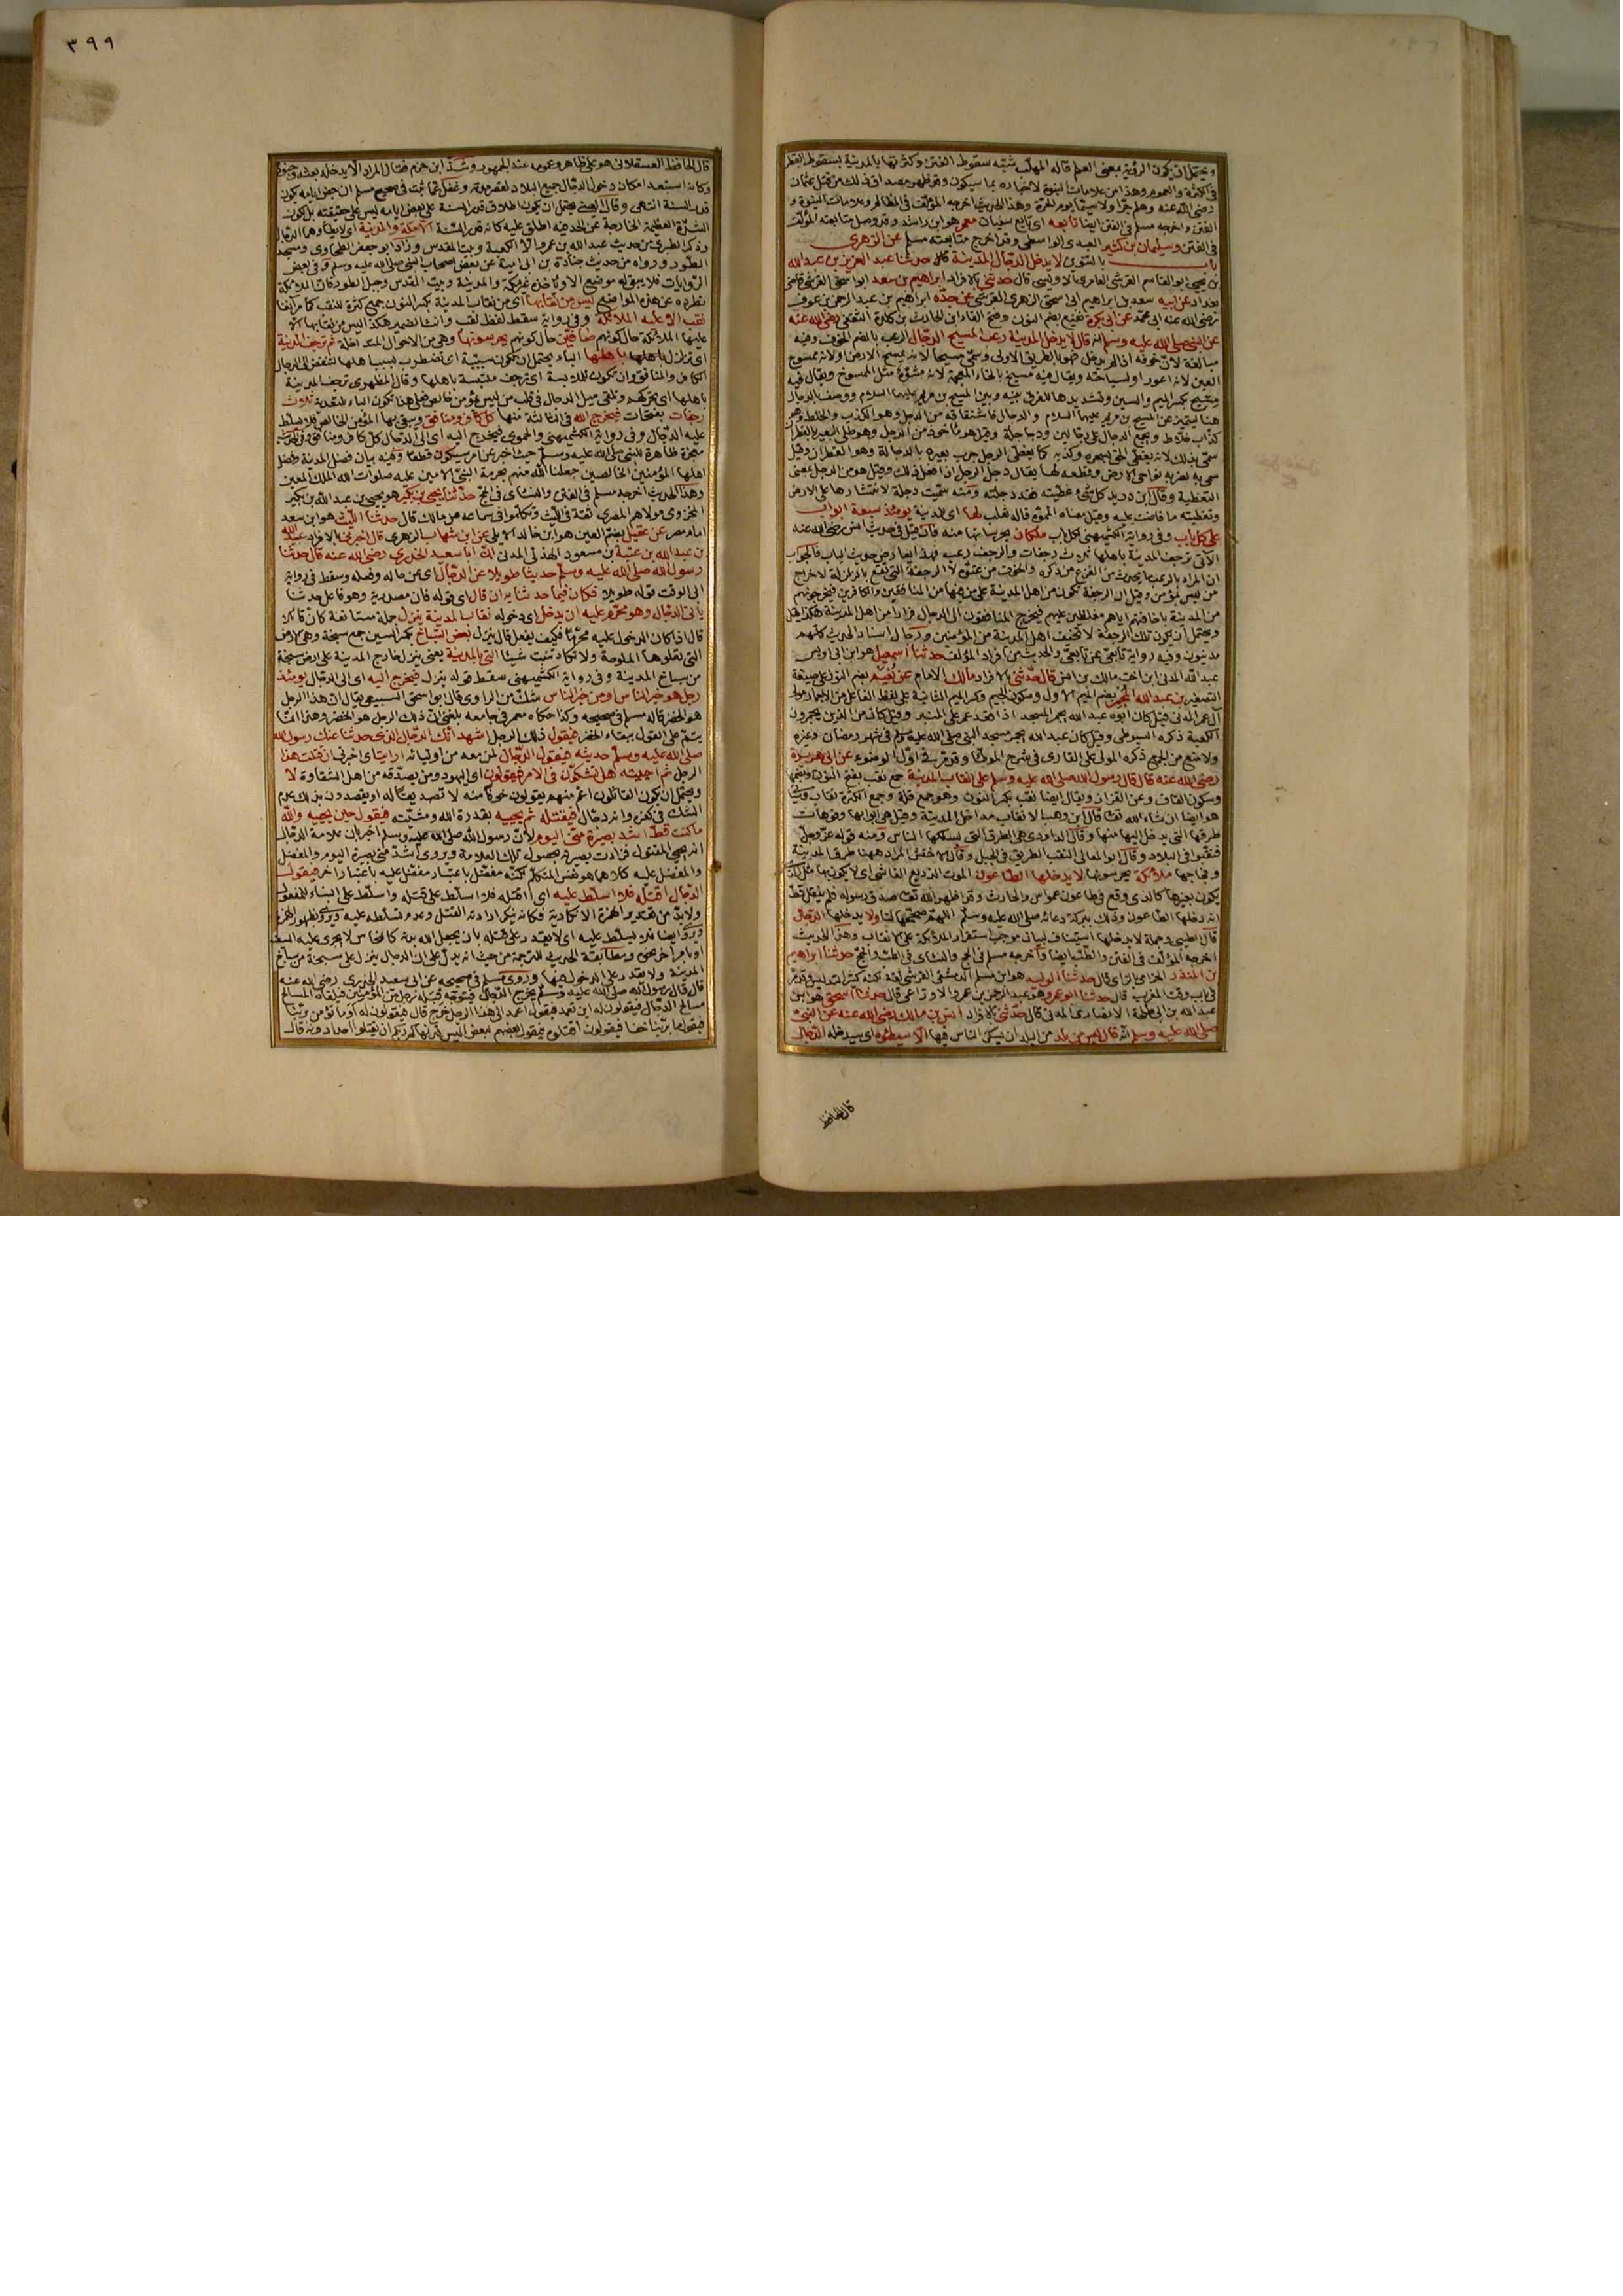 ويحتمل ان يكون الرؤية بمعنى العلم قاله المهلب شبه سقوط الفتن وكثرتها بالمدينة بسقوط القطر
في الكثرة والعموم وهذا من علامات النبوة لاخباره بما سيكون وقد ظهر مصداق ذلك من قتل عثمان
رضي الله عنه وهلم جرا ولا سيما يوم الحرة وهذا الحديث اخرجه المؤلف في المظالم وعلامات النبوة و
الفتن واخرجه مسلم في الفتن ايضا تابعه اى تابع سفيان معمر هو ابن راشد وقد وصل متابعته المؤلف
في الفتن وسليمان بن كثير العبدي الواسطي وقد اخرج متابعته مسلم عن الزهري
باب بالتنوين لا يدخل الدجال المدينة حدثنا عبد العزيز بن عبد الله
بن يحيى ابو القاسم القرشي العامري الاويسي قال حدثني بالافراد ابراهيم بن سعد ابو اسحق القرشي قاضى
بغداد عن ابيه سعد بن ابراهيم ابى اسحق الزهري القرشي عن جده ابراهيم بن عبد الرحمن بن عوف
رضي الله عنه ابى محمد عن ابى بكرة نفيع بضم النون وفتح الفاء ابن الحارث بن كلدة الثقفي رضي الله عنه
عن النبي صلى الله عليه وسلم انه قال لا يدخل المدينة رعب المسيح الدجال الرعب بالضم الخوف وفيه
مبالغة لان خوفه اذا لم يدخل فهو بالطريق الاولى وسمي مسيحا لانه يمسح الارض او لانه ممسوح
العين لانه اعور او لسياحته ويقال فيه مسيخ بالخاء المعجمة لانه مشوه مثل الممسوخ ويقال فيه
مسيح بكسر الميم والسين وتشديدها للفرق بينه وبين المسيح بن مريم عليهما السلام ووصف بالدجال
هنا ليتميز عن المسيح بن مريم عليهما السلام والدجال فاشتقاقه من الدجل وهو الكذب والخلط وهو
كذاب خلاط ويجمع الدجال على دجالين ودجاجلة وقيل هو مأخوذ من الدجل وهو طلي البعير بالقطران
سمي بذلك لانه يغطي الحق بسحره وكذبه كما يغطي الرجل جرب بعيره بالدجالة وهو القطران وقيل
سمي به لضربه نواحي الارض وقطعه لها يقال دجل الرجل اذا فعل ذلك وقيل هو من الدجل بمعنى
التغطية وقال ابن دريد كل شيء غطيته فقد دجلته ومنه سميت دجلة لانتشارها على الارض
وتغطيته ما فاضت عليه وقيل معناه المموه قاله ثعلب لها اى للمدينة يومئذ سبعة ابواب
على كل باب وفي رواية الكشميهني لكل باب ملكان يحرسانها منه فان قيل في حديث انس رضي الله عنه
الآتي ترجف المدينة باهلها ثلاث رجفات والرجف رعب فهذا يعارض حديث الباب فالجواب
ان المراد بالرعب ما يحدث من الفزع من ذكره والخوف من عتوه لا الرجفة التي تقع بالزلزلة لاخراج
من ليس بمؤمن وقيل ان الرجفة تكون من اهل المدينة على من بها من المنافقين والكافرين فيخرجونهم
من المدينة باخافتهم اياهم فيخرج المنافقون الى الدجال فرارا من اهل المدينة
ويحتمل ان يكون تلك الرجفة لا تخيف اهل المدينة من المؤمنين ورجال اسناد الحديث كلهم
مدنيون وفيه رواية تابعي عن تابعي والحديث من افراد المؤلف حدثنا اسمعيل هو ابن ابى اويس
عبد الله المدني ابن اخت مالك بن انس قال حدثني بالافراد مالك الامام عن نعيم بضم النون على صيغة
التصغير بن عبد الله المجمر بضم الميم الاول وسكون الجيم وكسر الميم الثانية على لفظ الفاعل من الاجمار مولى
آل عمر المدني قيل كان ابوه عبد الله يجمر المسجد اذا قعد عمر على المنبر وقيل كان من الذين يجمرون
الكعبة ذكره السيوطي وقيل كان عبد الله يجمر مسجد النبي صلى الله عليه وسلم في شهر رمضان وغيره
ولا منع من الجمع ذكره المولى على القاري في شرح الموطأ وقد مر في اول الوضوء عن ابى هريرة
رضي الله عنه قال قال رسول الله صلى الله عليه وسلم على انقاب المدينة جمع نقب بفتح النون وبضمها
وسكون القاف وعن القزاز ويقال ايضا نقب بكسر النون وهو جمع قلة وجمع الكثرة نقاب
هو ايضا ان شاء الله تعالى قال ابن وهب الانقاب مداخل المدينة وقيل هي ابوابها وفوهات
طرقها التي يدخل اليها منها وقال الداودي هي الطرق التي يسلكها الناس ومنه قوله عز وجل
فنقبوا في البلاد وقال ابو المعالي النقب الطريق في الجبل وقال الاخفش المراد ههنا طرق المدينة
وفجاجها ملائكة يحرسونها لا يدخلها الطاعون الموت الذريع الفاشي اى لا يكون بها مثل الذي
يكون بغيرها كالذي وقع في طاعون عمواس والجارف وقد اظهر الله تعالى صدق رسوله فلم ينقل قط
انه دخلها الطاعون وذلك ببركة دعائه صلى الله عليه وسلم اللهم صححها لنا ولا يدخلها الدجال
قال الطيبي وجملة لا يدخلها استيناف لبيان موجب استقرار الملائكة على الانقاب وهذا الحديث
اخرجه المؤلف في الفتن والطب ايضا واخرجه مسلم في الحج والنسائي في الطب والحج حدثنا ابراهيم
بن المنذر الحزامي بالزاي قال حدثنا الوليد هو ابن مسلم الدمشقي القرشي ثقة لكنه كثير التدليس وقد مر
في باب وقت المغرب قال حدثنا ابو عمرو هو عبد الرحمن بن عمرو الاوزاعي قال حدثنا اسحق هو ابن
عبد الله بن ابى طلحة الانصاري المدني قال حدثني بالافراد انس بن مالك رضي الله عنه عن النبي
صلى الله عليه وسلم انه قال ليس من بلد من البلدان يسكن الناس فيها الا سيطؤه اى سيدخله الدجال
قال الحافظ
٣٩٩
قال الحافظ العسقلاني هو على ظاهره وعمومه عند الجمهور وشذ ابن حزم فقال المراد الا يدخله بعثه وجنوده
وكأنه استبعد امكان دخول الدجال جميع البلاد لقصر مدته وغفل عما ثبت في صحيح مسلم ان بعض ايامه يكون
قدر السنة انتهى وقال العيني يحتمل ان يكون اطلاق قدر السنة على بعض ايامه ليس على حقيقته بل لكون
الشدة العظيمة الخارجة عن الحد فيه اطلق عليه كأنه قدر السنة الا مكة والمدينة اى لا يطأهما الدجال
وذكر الطبري من حديث عبد الله بن عمرو الا الكعبة وبيت المقدس وزاد ابو جعفر الطحاوي ومسجد
الطور ورواه من حديث جنادة بن ابى امية عن بعض اصحاب النبي صلى الله عليه وسلم وفي بعض
الروايات فلا يبقى له موضع الا ويأخذه غير مكة والمدينة وبيت المقدس وجبل الطور فان الملائكة
تطرده عن هذه المواضع ليس من نقابها اى من نقاب المدينة بكسر النون جمع كثرة للنقب كما مر آنفا
نقب الا عليه الملائكة وفي رواية سقط لفظ نقب وانث الضمير هكذا ليس من نقابها الا
عليها الملائكة حال كونهم صافين حال كونهم يحرسونها وهي من الاحوال المتداخلة ثم ترجف المدينة
اى تزلزل باهلها الباء يحتمل ان تكون سببية اى تضطرب بسبب اهلها لتنفض الى الدجال
الكافر والمنافق وان تكون للملابسة اى ترجف ملتبسة باهلها وقال المظهري ترجف المدينة
باهلها اى تحركهم وتلقي ميل الدجال في قلب من ليس بمؤمن خالص فعلى هذا تكون الباء للتعدية ثلاث
رجفات بفتحات فيخرج الله في الثالثة منها كل كافر ومنافق ويبقى بها المؤمن الخالص فلا يسلط
عليه الدجال وفي رواية الكشميهني والحموي فيخرج اليه اى الى الدجال كل كافر ومنافق وفي الحديث
معجزة ظاهرة للنبي صلى الله عليه وسلم حيث اخبر عن امر سيكون قطعا وفيه بيان فضل المدينة وفضل
اهلها المؤمنين الخالصين جعلنا الله منهم بحرمة النبي الامين عليه صلوات الله الملك المعين
وهذا الحديث اخرجه مسلم في الفتن والنسائي في الحج حدثنا يحيى بن بكير هو يحيى بن عبد الله بن بكير
المخزومي مولاهم المصري ثقة في الليث وتكلموا في سماعه من مالك قال حدثنا الليث هو ابن سعد
امام مصر عن عقيل بضم العين هو ابن خالد الايلي عن ابن شهاب الزهري قال اخبرني بالافراد عبيد الله
بن عبد الله بن عتبة بن مسعود الهذلي المدني ان ابا سعيد الخدري رضي الله عنه قال حدثنا
رسول الله صلى الله عليه وسلم حديثا طويلا عن الدجال اى عن حاله وفعله وسقط في رواية
ابى الوقت قوله طويلا فكان فيما حدثنا به ان قال اى قوله فان مصدرية وهو فاعل حدثنا
يأتي الدجال وهو محرم عليه ان يدخل اى دخوله نقاب المدينة ينزل جملة مستأنفة كأن قائلا
قال اذا كان الدخول عليه محرما فكيف يفعل قال ينزل بعض السباخ بكسر السين جمع سبخة وهي الارض
التي تعلوها الملوحة ولا تكاد تنبت شيئا التي بالمدينة يعني ينزل خارج المدينة على ارض سبخة
من سباخ المدينة وفي رواية الكشميهني سقط قوله ينزل فيخرج اليه اى الى الدجال يومئذ
رجل هو خير الناس او من خير الناس شك من الراوي قال ابو اسحق السبيعي يقال ان هذا الرجل
هو الخضر قاله مسلم في صحيحه وكذا حكاه معمر في جامعه بلغني ان ذلك الرجل هو الخضر وهذا انما
يتم على القول ببقاء الخضر فيقول ذلك الرجل اشهد انك الدجال الذي حدثنا عنك رسول الله
صلى الله عليه وسلم حديثه فيقول الدجال لمن معه من اوليائه ارايت اى اخبرني ان قتلت هذا
الرجل ثم احييته هل تشكون في الامر فيقولون اى اليهود ومن يصدقه من اهل الشقاوة لا
ويحتمل ان يكون القائلون اعم منهم يقولون خوفا منه لا تصديقا له او يقصدون بذلك عدم
الشك في كفره وانه دجال فيقتله ثم يحييه بقدرة الله ومشيئته فيقول حين يحييه والله
ما كنت قط اشد بصيرة مني اليوم لان رسول الله صلى الله عليه وسلم اخبر بان علامة الدجال
انه يحيي المقتول فزادت بصيرته بحصول تلك العلامة ويروى اشد مني بصيرة اليوم والمفضل
والمفضل عليه كلاهما هو نفس المتكلم لكنه مفضل باعتبار مفضل عليه باعتبار آخر فيقول
الدجال اقتله فلا اسلط عليه اى اقتله فلا اسلط على قتله واسلط على البناء للمفعول
ولا بد من تقدير الهمزة الانكارية فكأنه ينكر ارادته القتل وعدم تسلطه عليه ويروى بظهور الهمزة
ويروى ايضا فلا يسلط عليه اى لا يقدر على قتله بان يجعل الله بدنه كالنحاس لا يجري عليه السيف
او بامر آخر نحوه ومطابقة الحديث للترجمة من حيث انه يدل على ان الدجال ينزل على سبخة من سباخ
المدينة ولا يقدر على الدخول فيها وروى مسلم في صحيحه عن ابى سعيد الخدري رضي الله عنه
قال قال رسول الله صلى الله عليه وسلم يخرج الدجال فيتوجه قبله رجل من المؤمنين فيلقاه المسالح
مسالح الدجال فيقولون له اين تعمد فيقول اعمد الى هذا الرجل الذي خرج قال فيقولون له اوما تؤمن بربنا
فيقول ما بربنا خفا فيقولون اقتلوه فيقول بعضهم لبعض اليس قد نهاكم ربكم ان تقتلوا احدا دونه قال